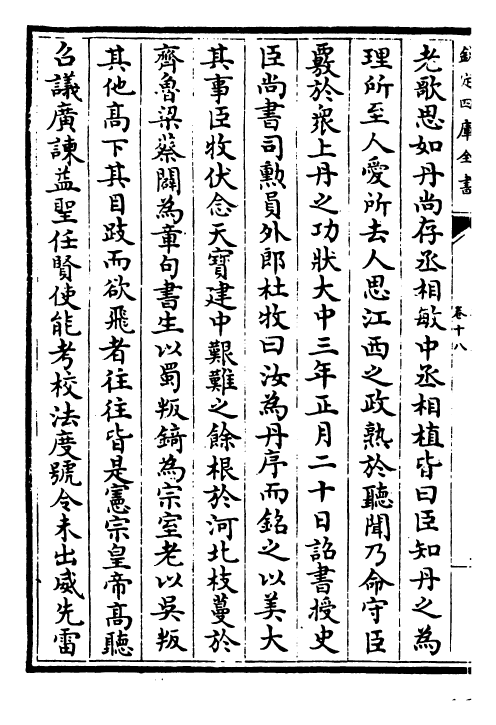 欽定四庫全書
卷十八
老歌思如丹尚存丞相敏中丞相植皆曰臣知丹之為
理所至人愛所去人思江西之政熟於聽聞乃命守臣
覈於衆上丹之功狀大中三年正月二十日詔書授史
臣尚書司勲員外郎杜牧曰汝為丹序而銘之以美大
其事臣牧伏念天寶建中艱難之餘根於河北枝蔓於
齊魯梁蔡闢為章句書生以蜀叛錡為宗室老以吳叛
其他高下其目跂而欲飛者往往皆是憲宗皇帝高聽
召議廣諫益聖任賢使能考校法度號令未出威先雷